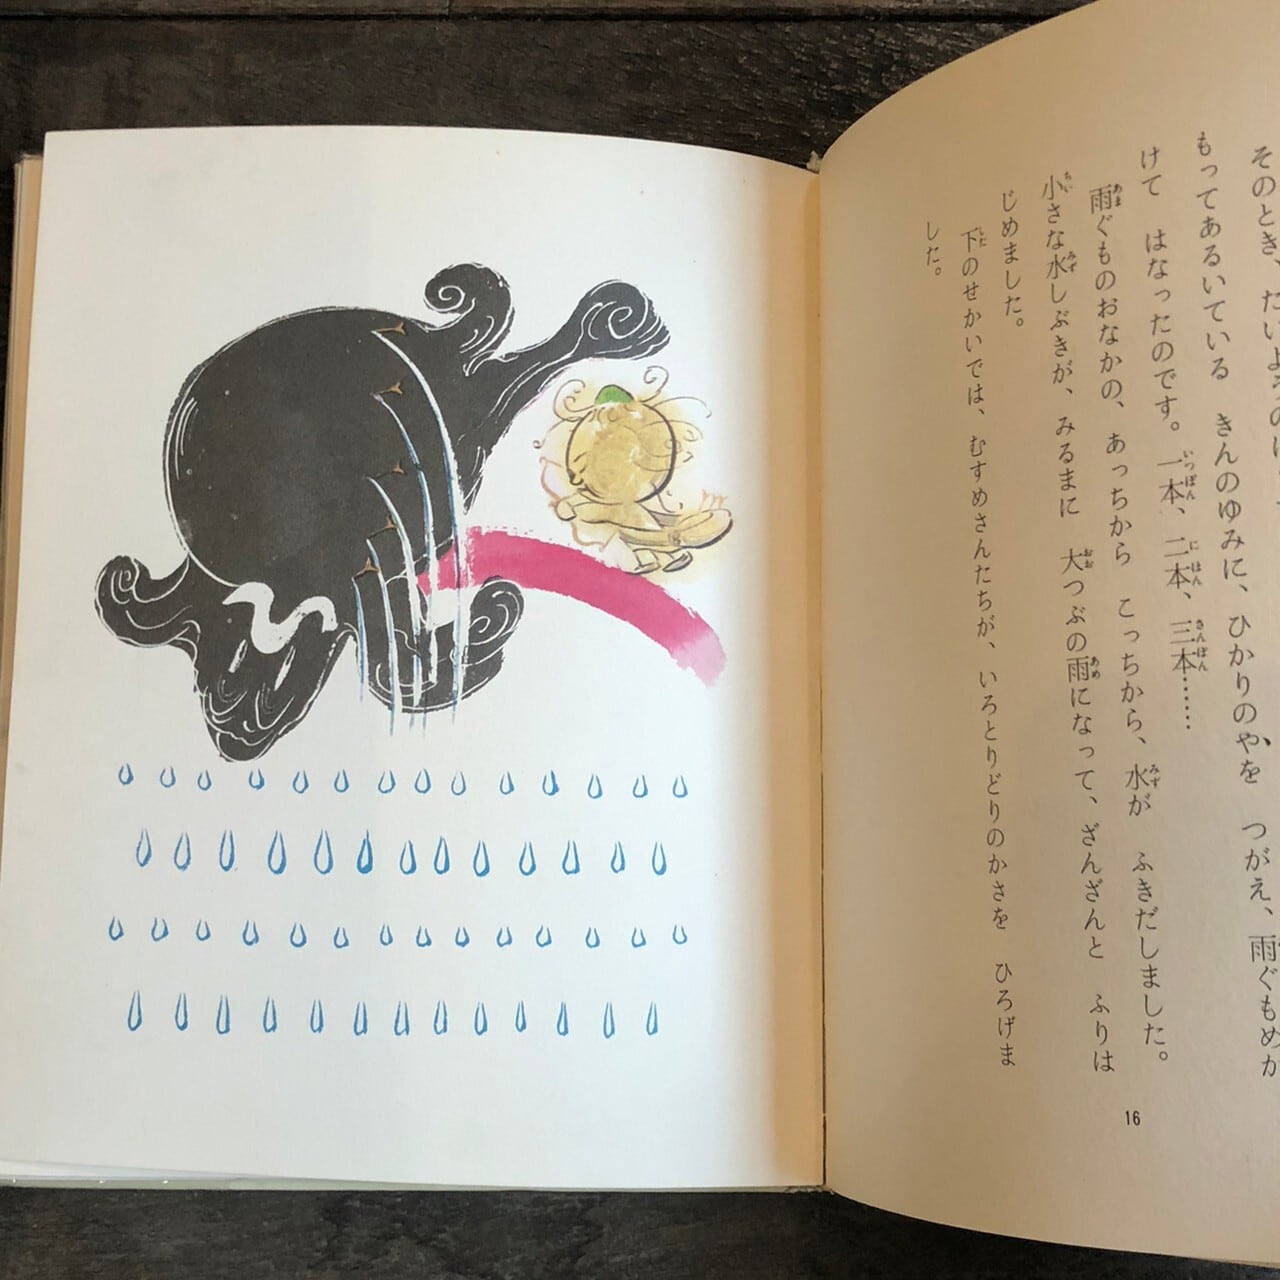 そのとき、たいようの
もってあるいている きんのゆみに、ひかりのやを つがえ、雨ぐもめが
けて はなったのです。一本、二本、三本……
雨ぐものおなかの、あっちから こっちから、水が ふきだしました。
小さな水しぶきが、みるまに 大つぶの雨になって、ざんざんと ふりは
じめました。
下のせかいでは、むすめさんたちが、いろとりどりのかさを ひろげま
した。
16